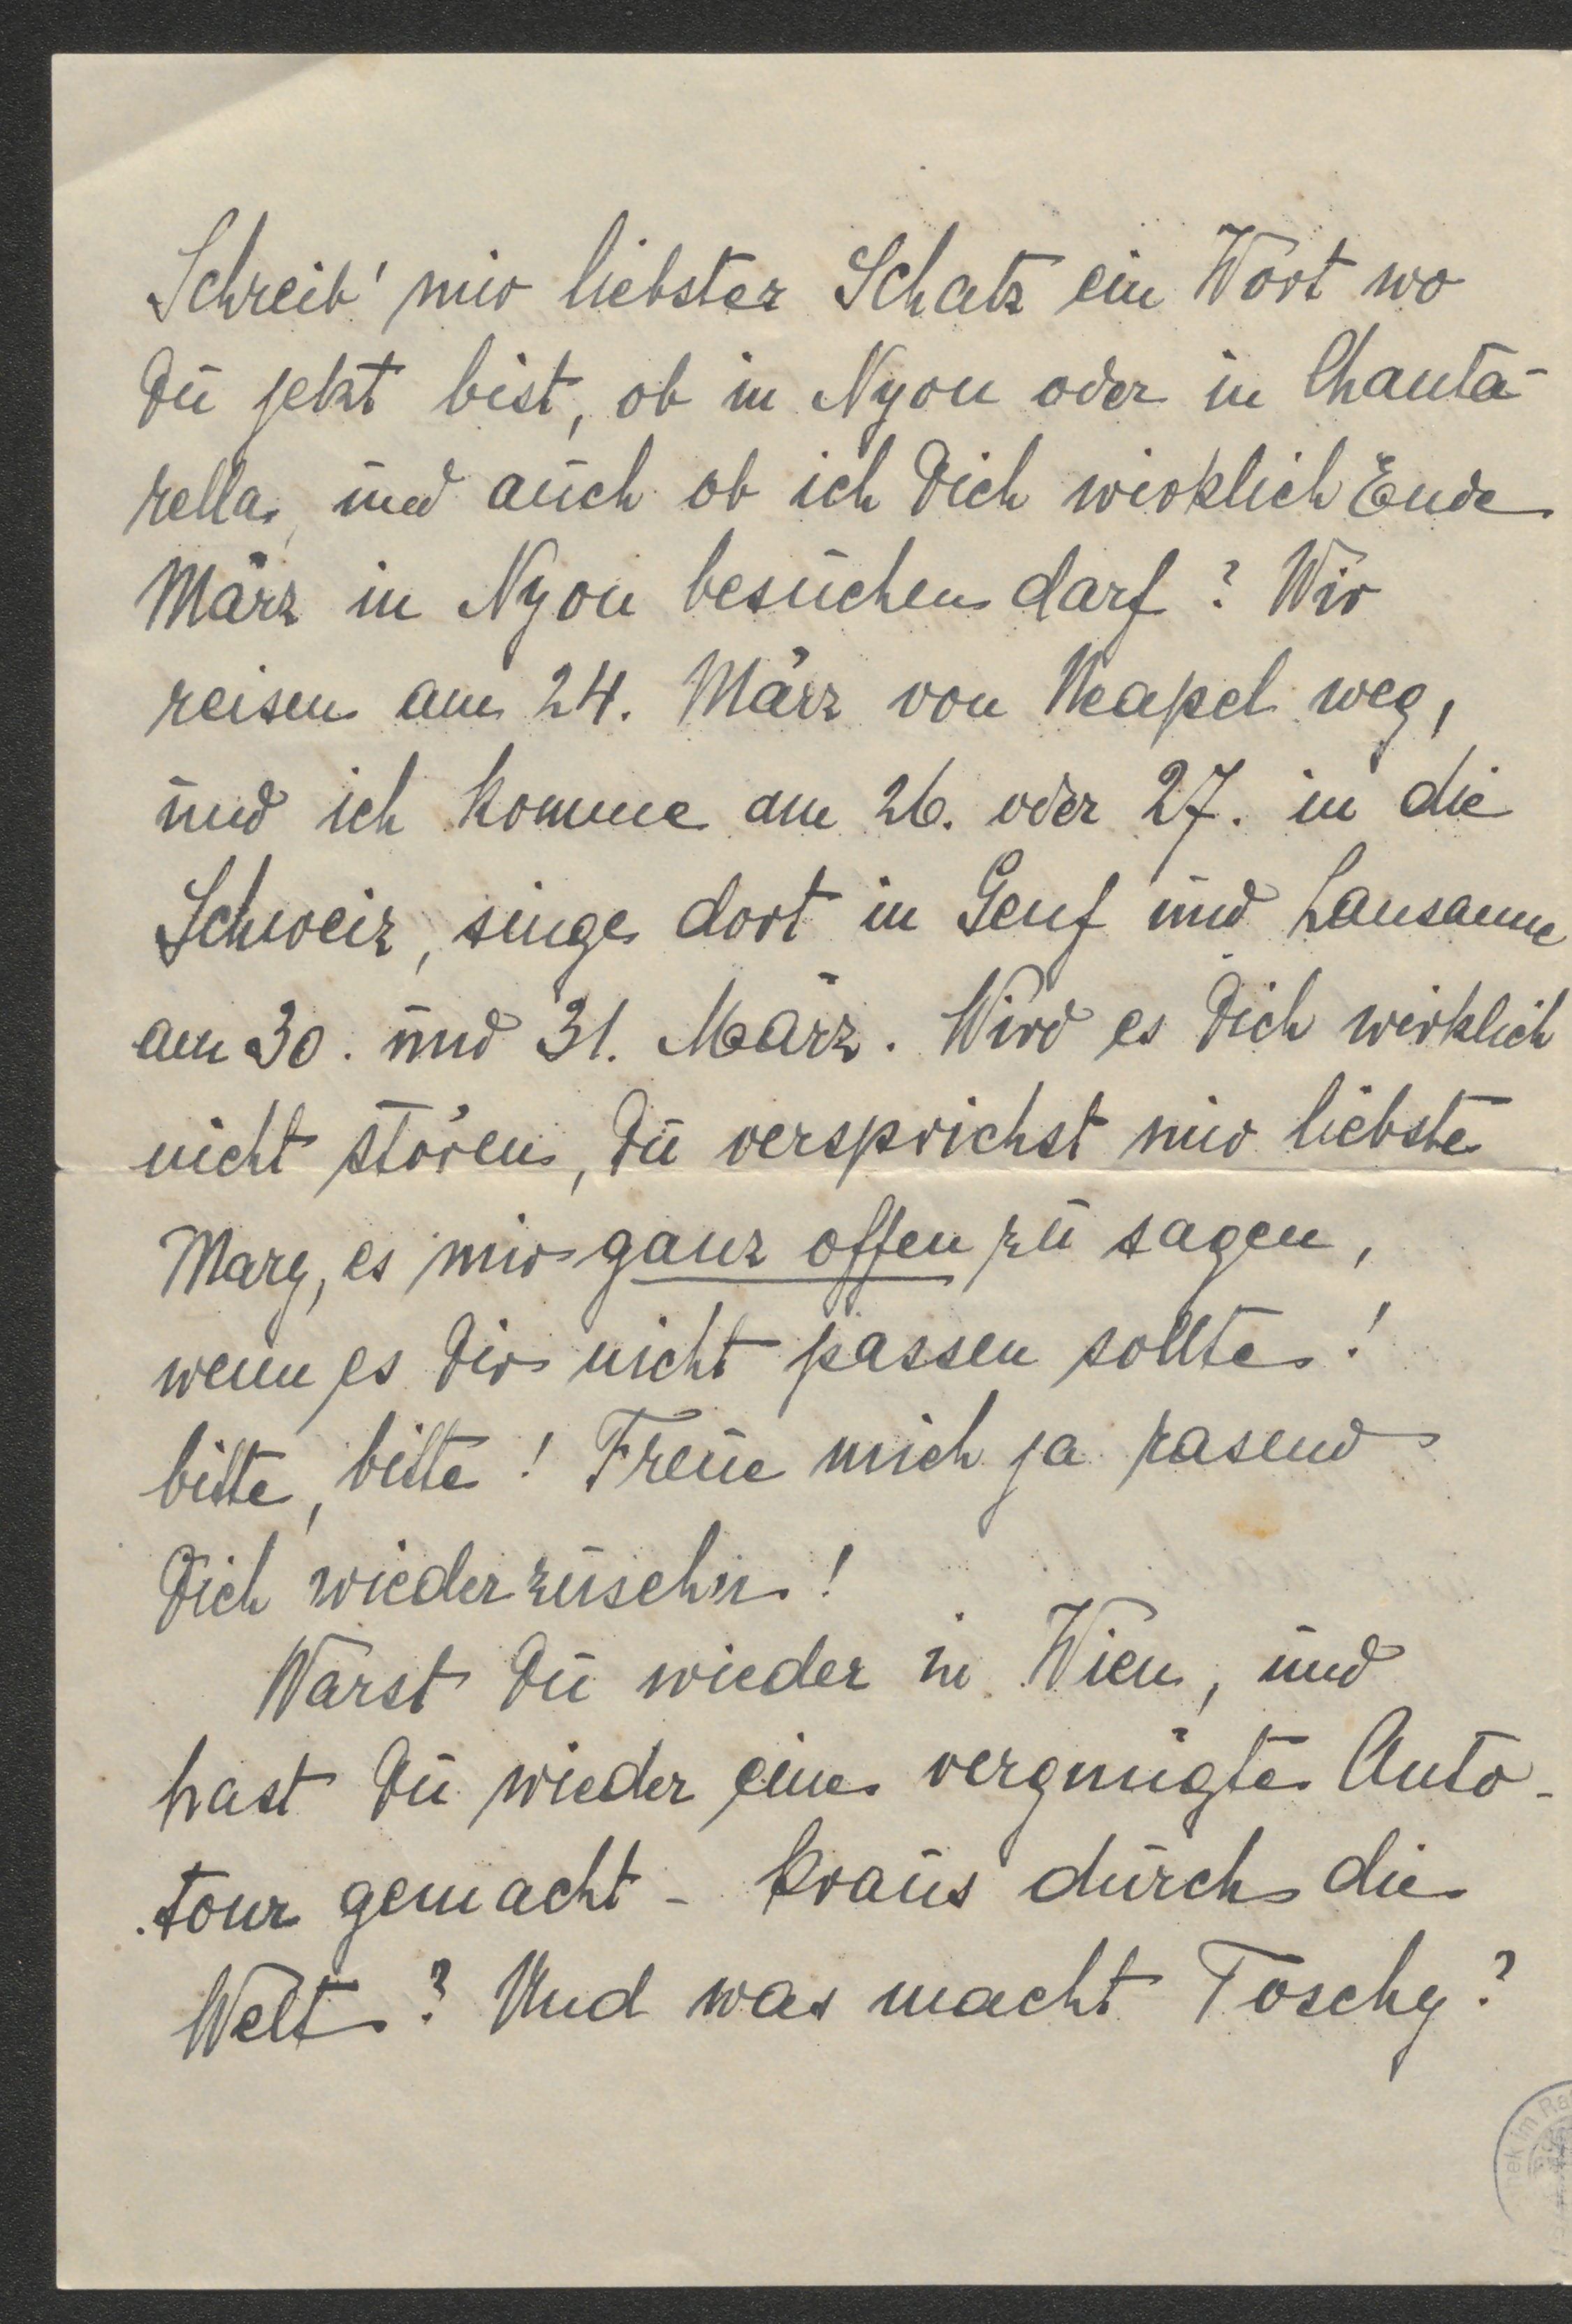 Schreib' mir liebster Schatz ein Wort wo
Du jetzt bist, ob in Nyon oder in Chanta-
rella, und auch ob ich Dich wirklich Ende
März in Nyon besuchen darf? Wir
reisen am 24. März von Neapel weg,
und ich komme am 26. oder 27. in die
Schweiz, singe dort in Genf und Lausanne
am 30. und 31. März. Wird es Dich wirklich
nicht stören, Du versprichst mir liebste
Mary, es mir ganz offen zu sagen,
wenn es Dir nicht passen sollte!
bitte, bitte! Freue mich ja rasend
Dich wiederzuseh'n!
Warst Du wieder in Wien, und
hast Du wieder eine vergnügte Auto-
tour gemacht - kraus durch die
Welt? Und was macht Toschy?
ek im Ra